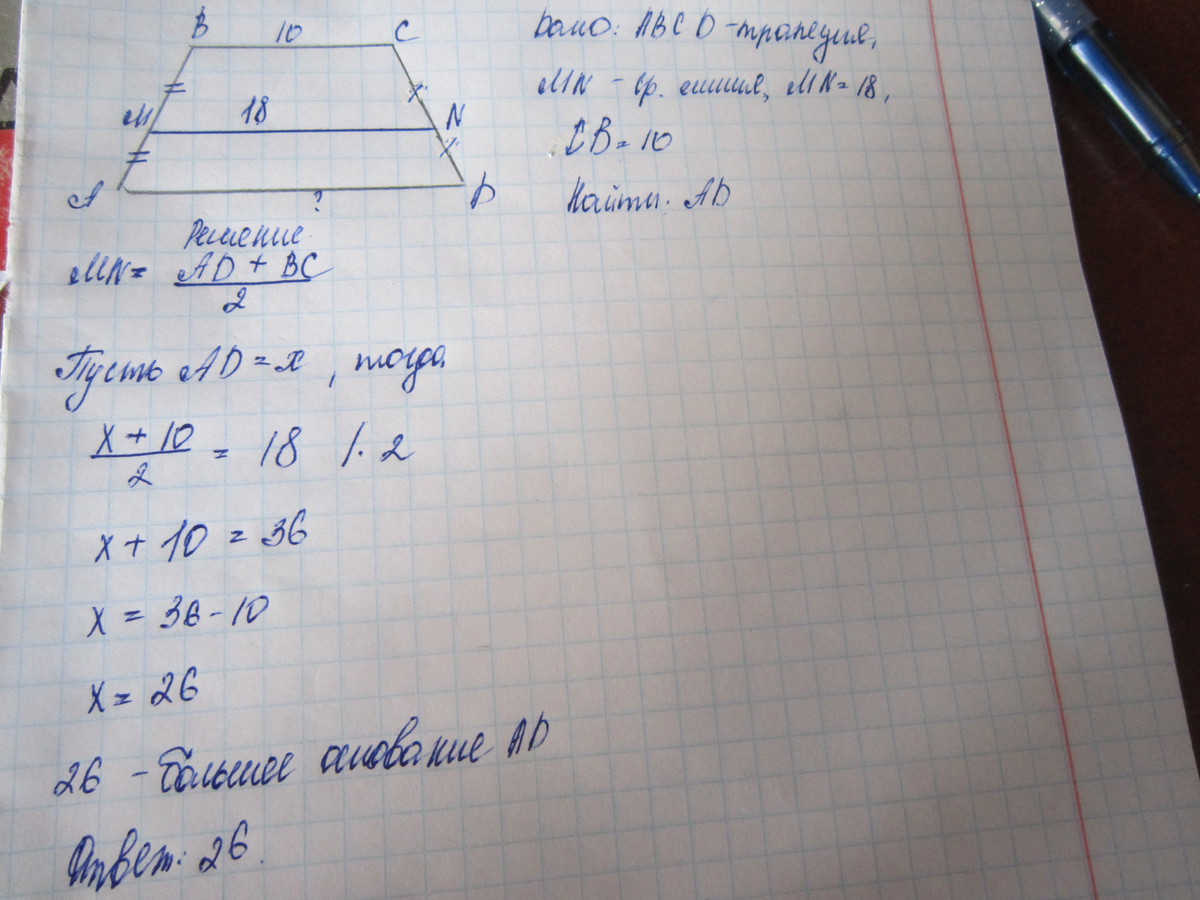 B 10 C
M 18 N
A ? D
Дано: ABCD - трапеция,
MN - ср. линия, MN = 18,
CB = 10
Найти: AD
Решение.
MN = AD + BC
2
Пусть AD = x, тогда
x + 10
2
= 18 |· 2
x + 10 = 36
x = 36 - 10
x = 26
26 - большее основание AD
Ответ: 26.